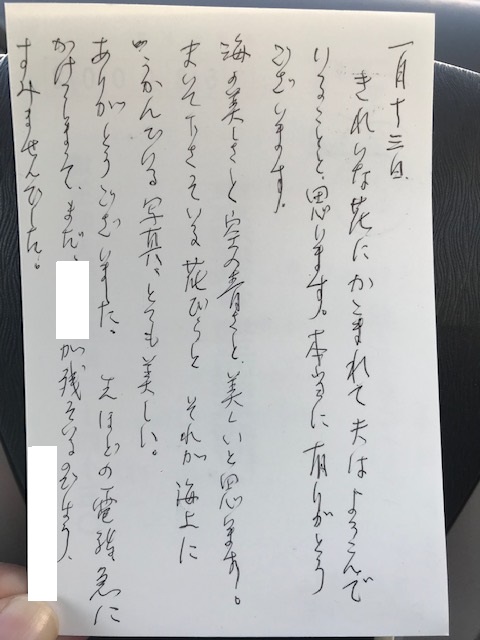 一月十三日
きれいな花にかこまれて夫はよろこんで
いることと、思います。本当に有りがとう
ございます。
海の美しさと空の青さと、美しいと思います。
まいて下さっている花びらと それが海上に
うかんでいる写真、とても美しい。
ありがとうございました。 先ほどの電話急に
かけてしまって、まだ、 が残っている
すみませんでした。